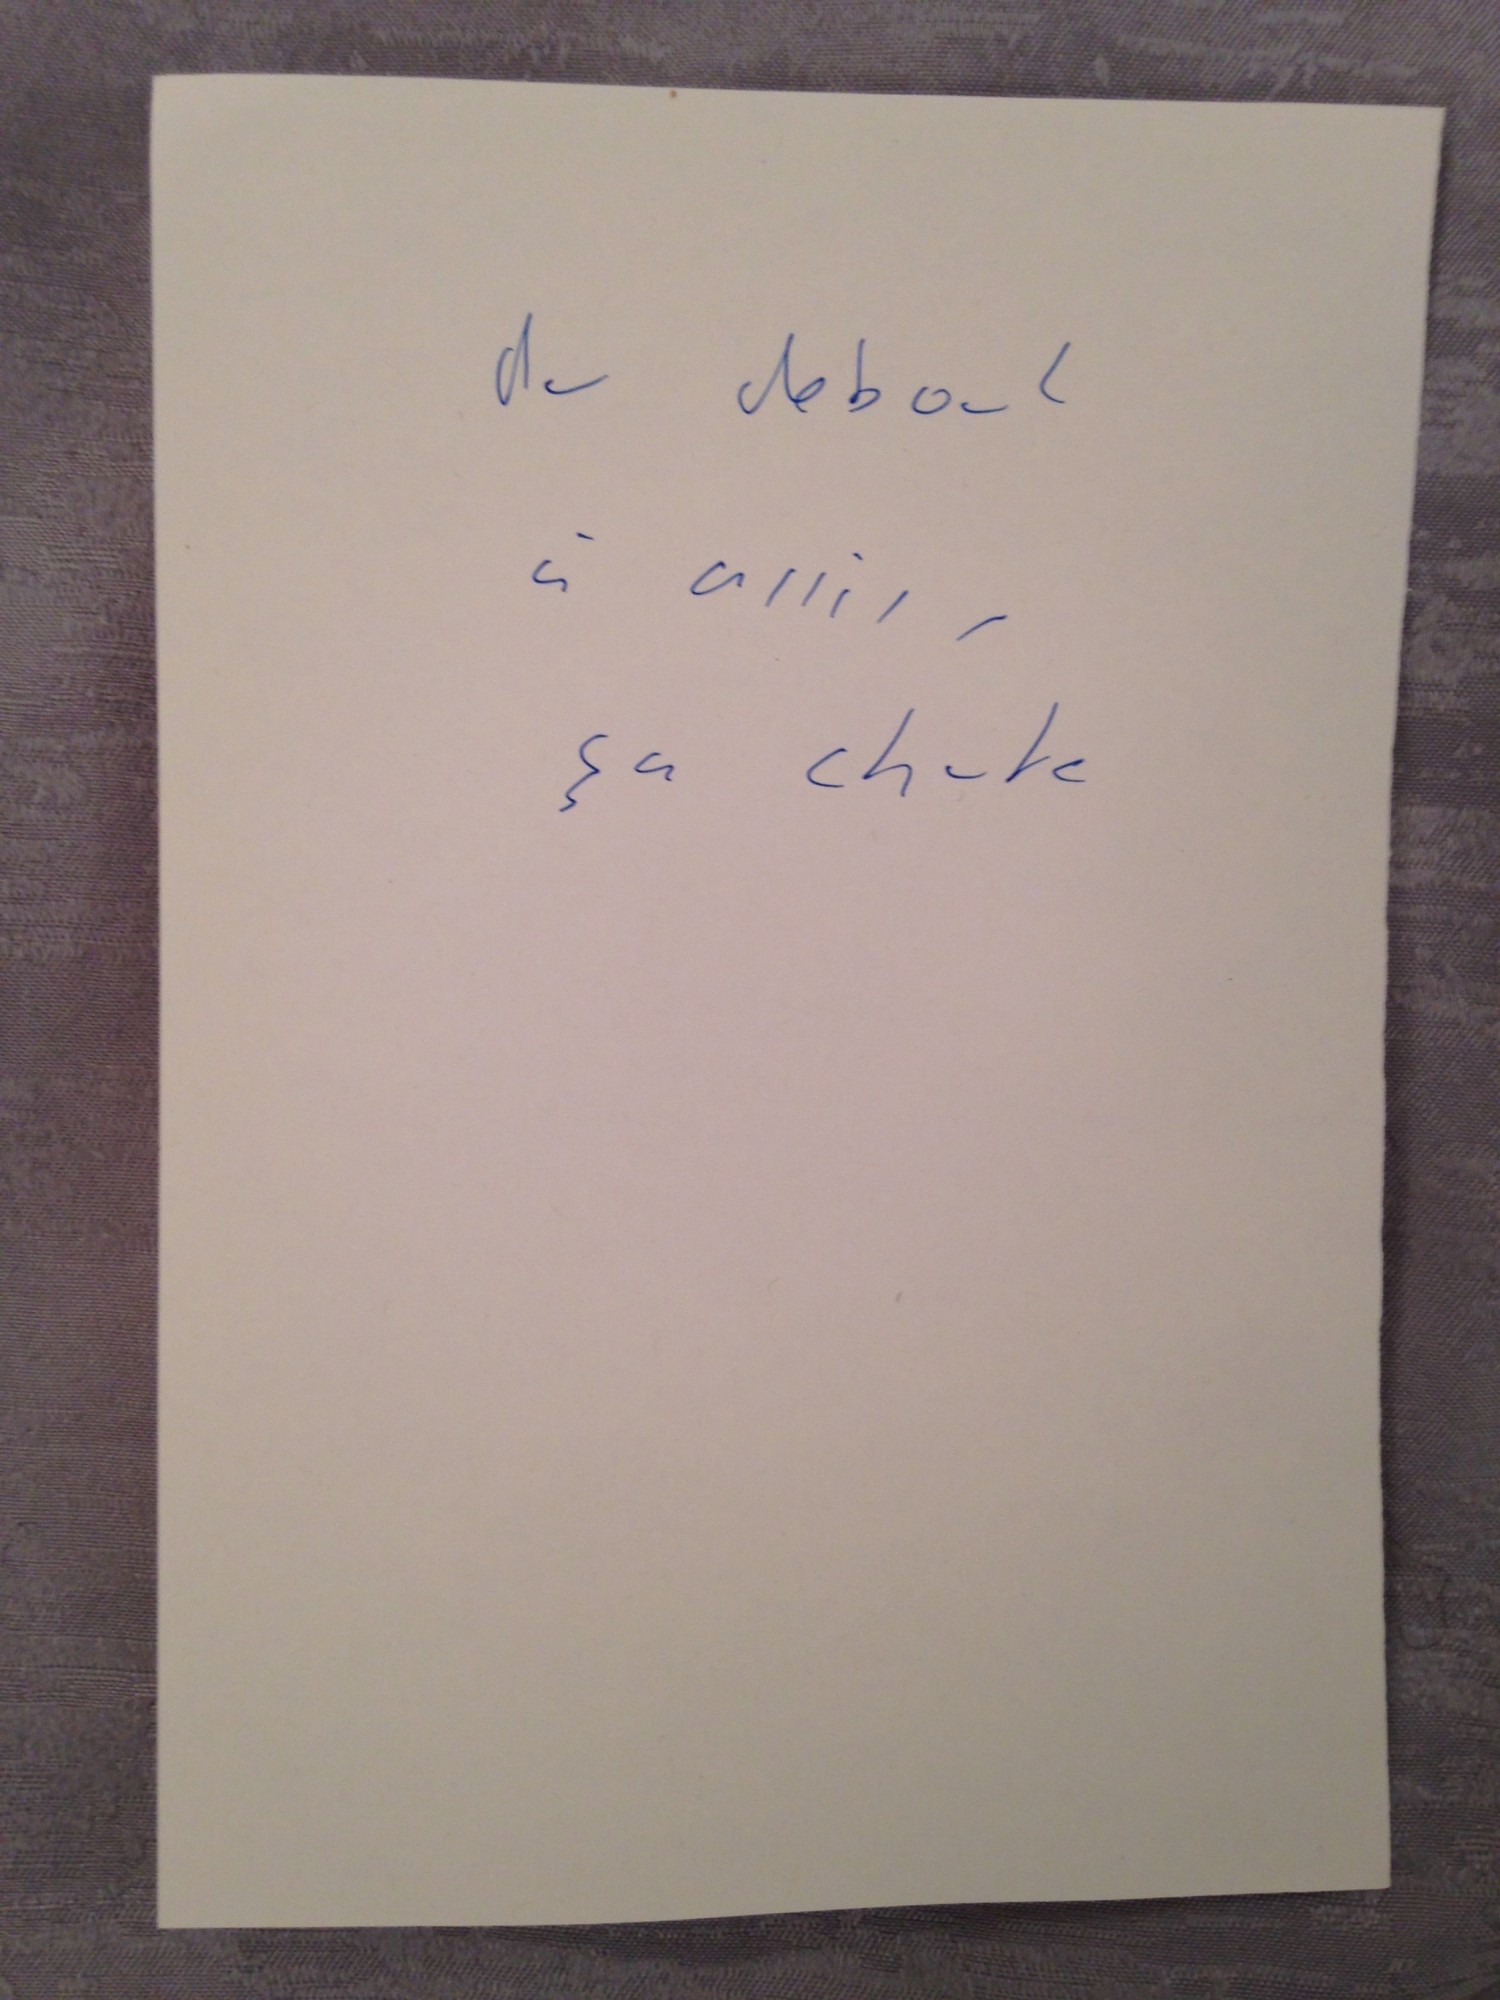 du debout
à assis,
ça chute